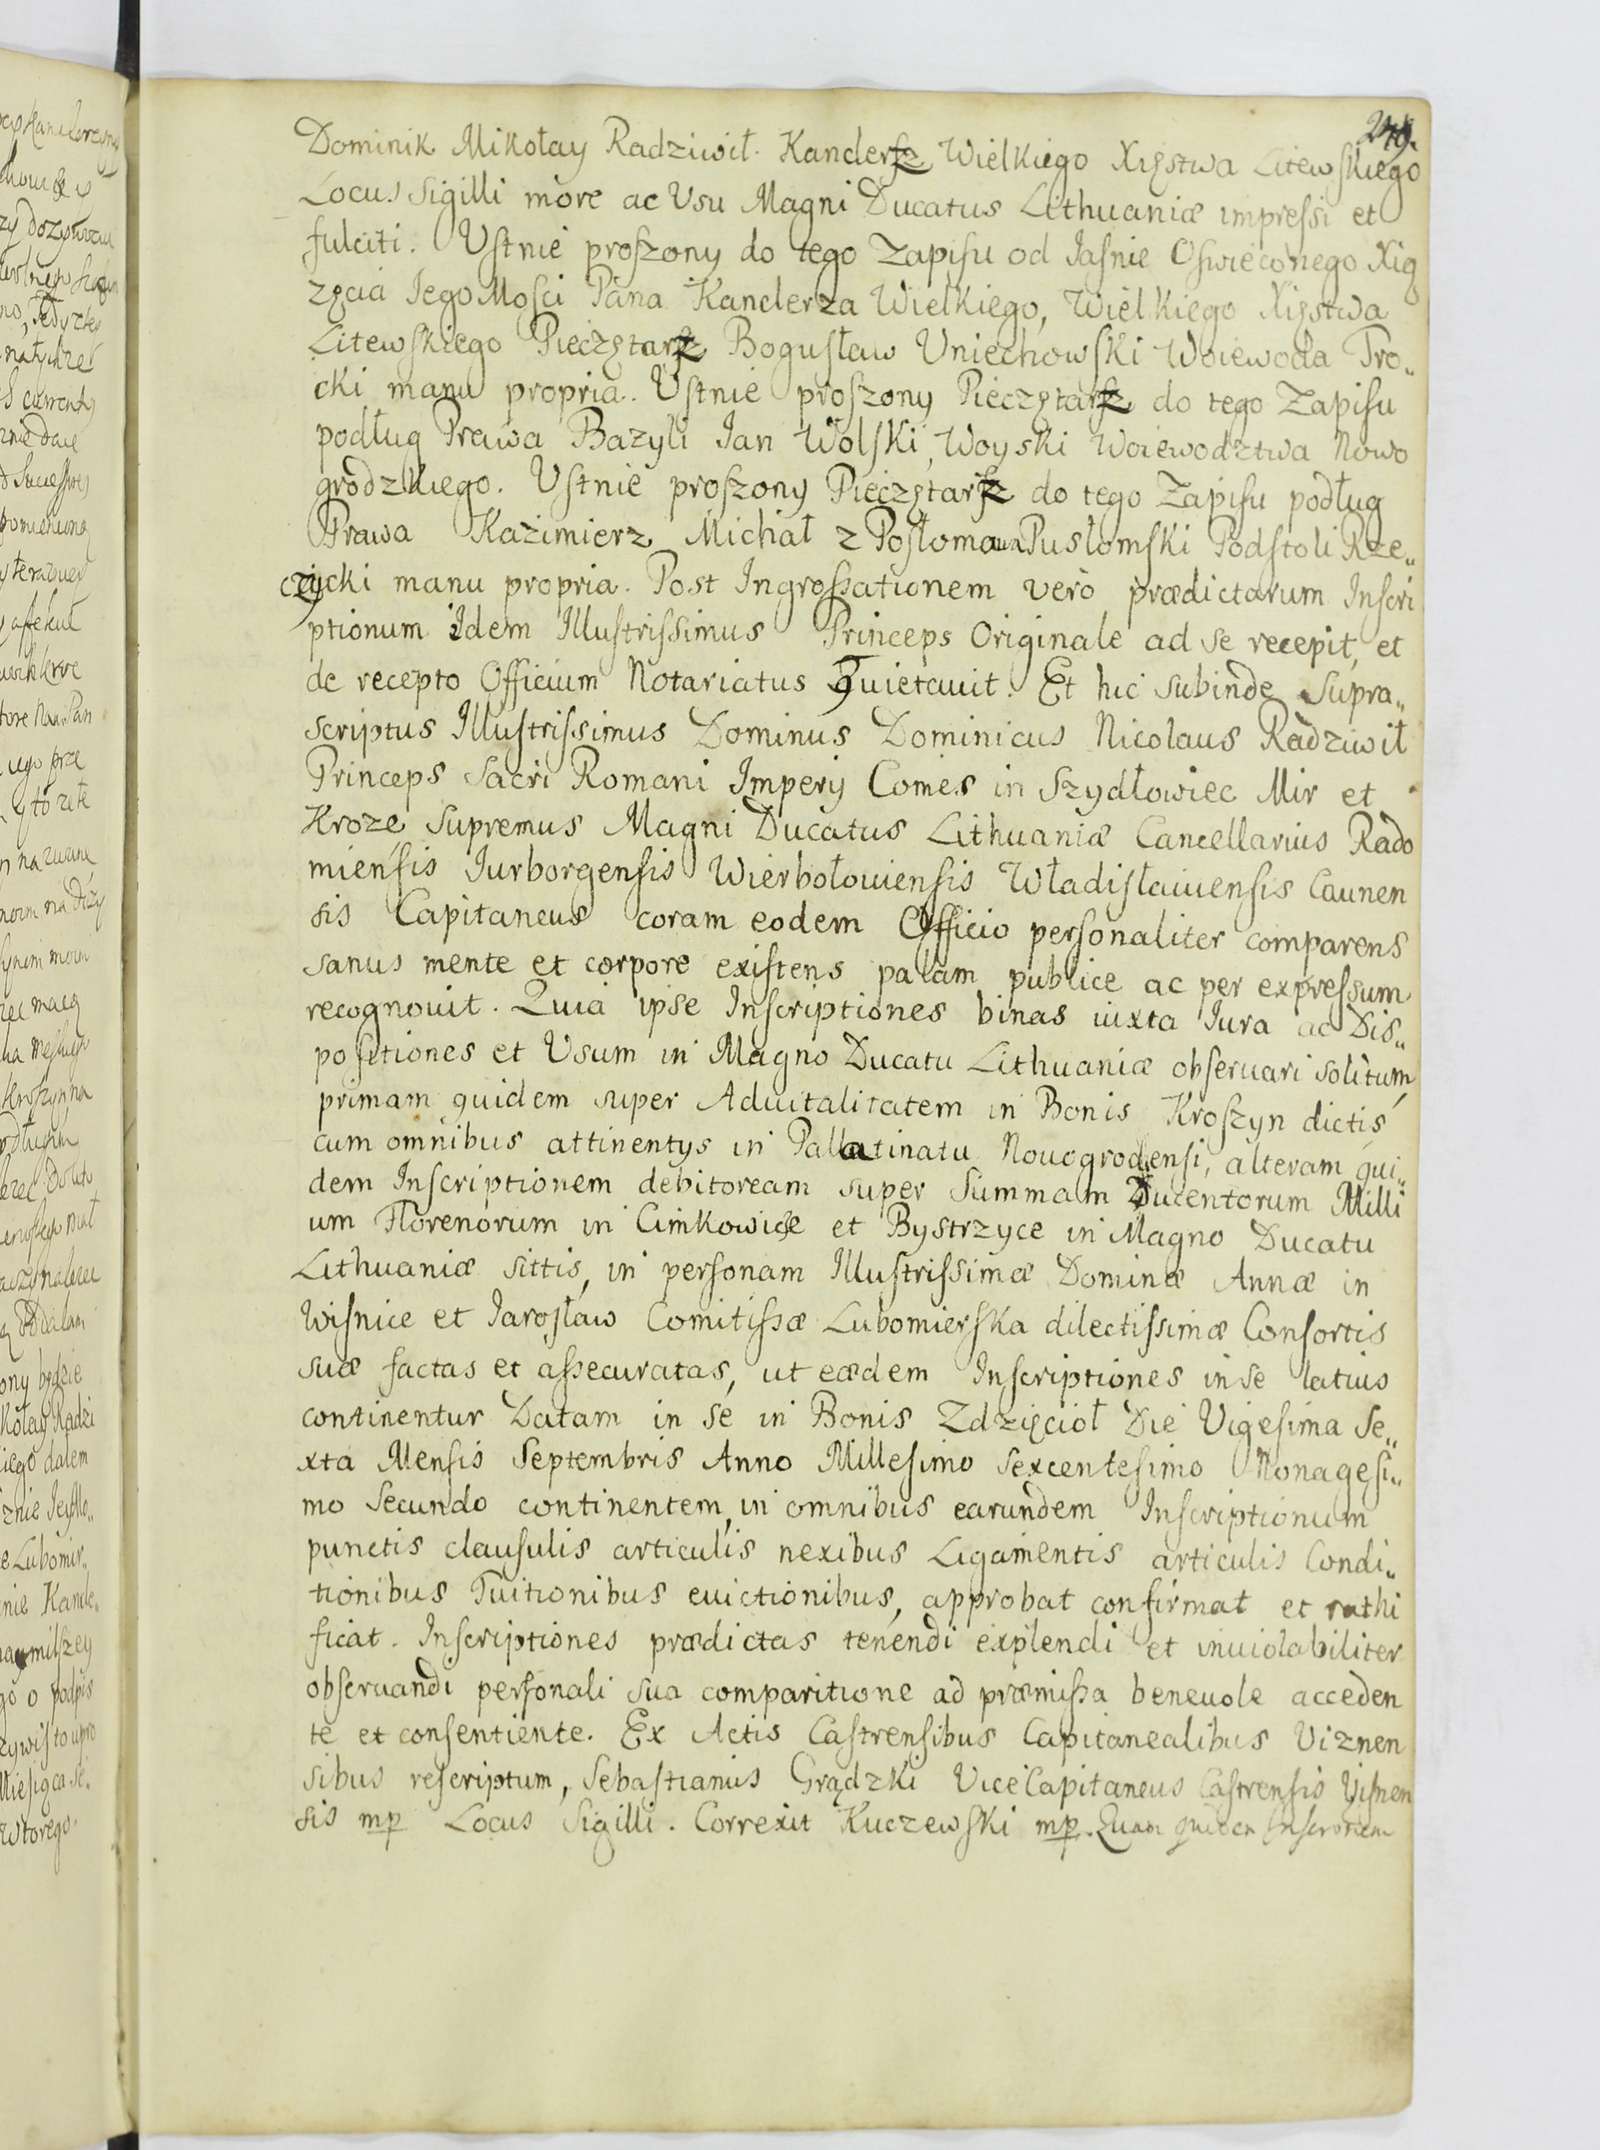 249.
Dominik Mikołay Radziwił. Kanclerz Wielkiego Xięstwa Litewskiego
Locus Sigilli more ac Vsu Magni Ducatus Lithuaniæ impressi et
fulciti. Vstnie proszony do tego Zapisu od Iasnie Oswieconego Xią
zęcia Iego Mosci Pana Kanclerza Wielkiego, Wielkiego Xięstwa
Litewskiego Pieczętarz Bogusław Vniechowski Woiewoda Tro„
cki manu propria. Vstnie proszony Pieczętarz do tego Zapisu
podług Prawa Bazyli Ian Wolski, Woyski Woiewodztwa Nowo
grodzkiego. Vstnie proszony Pieczętarz do tego Zapisu podług
Prawa Kazimierz Michał z Pusłomski Podstoli Rze„
czycki manu propria. Post Ingrossationem verò prædictarum Inscri
ptionum Idem Illustrissimus Princeps Originale ad se recepit, et
de recepto Officium Notariatus Quietauit. Et hic subinde supra„
scriptus Illustrissimus Dominus Dominicus Nicolaus Radziwił
Princeps Sacri Romani Imperij Comes in Szydłowiec Mir et
Kroze Supremus Magni Ducatus Lithuaniæ Cancellarius Rado
miensis Iurborgensis Wierbołouiensis Władisłauiensis Caunen
sis Capitaneus coram eodem Officio personaliter comparens
sanus mente et corpore existens palam publice ac per expressum
recognouit. Quia ipse Inscriptiones binas iuxta Iura ac Dis„
positiones et Vsum in Magno Ducatu Lithuaniæ obseruari solitum,
primam quidem super Aduitalitatem in Bonis Kroszyn dictis
cum omnibus attinentys in Pallatinatu Nouogrodensi, alteram qui„
dem Inscriptionem debitoream super Summam Ducentorum Milli
um Florenorum in Cimkowice et Bystrzyce in Magno Ducatu
Lithuaniæ sittis, in personam Illustrissimæ Dominæ Annæ in
Wisnice et Iarosław Comitissæ Lubomierska dilectissimæ Consortis
suæ factas et assecuratas, ut eædem Inscriptiones in se latius
continentur Datam in se in Bonis Zdzięcioł Die Vigesima Se„
xta Mensis Septembris Anno Millesimo Sexcentesimo Nonagesi„
mo Secundo continentem, in omnibus earundem Inscriptionum
punctis clausulis articulis nexibus Ligamentis articulis Condi„
tionibus Tuitionibus euictionibus, approbat confirmat et rathi
ficat. Inscriptiones prædictas tenendi explendi et inuiolabiliter
obseruandi personali sua comparitione ad præmissa beneuole acceden
te et consentiente. Ex Actis Castrensibus Capitanealibus Viznen
sibus rescriptum, Sebastianus Grądzki ViceCapitaneus Castrensis Visnen
sis mp Locus Sigilli. Correxit Kuczewski mp. Quam quidem